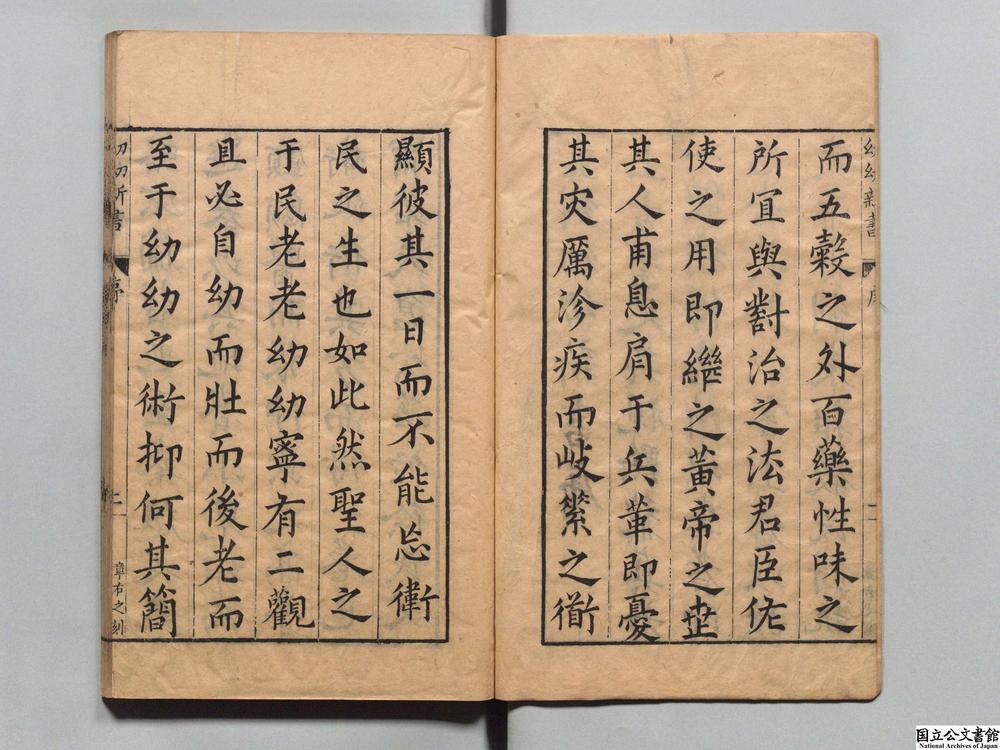 幼幼新書
而五穀之外百藥性味之
所宜與對治之法君臣佐
使之用即繼之黃帝之世
其人甫息肩于兵革即憂
其灾厲沴疾而岐築之術
顯彼其一日而不能忘衛
民之生也如此然聖人之
于民老老幼幼寧有二觀
且必自幼而壯而後老而
至于幼幼之術抑何其簡
幼幼新書
序
二
章右之刻
国立公文書館
National Archives of Japan